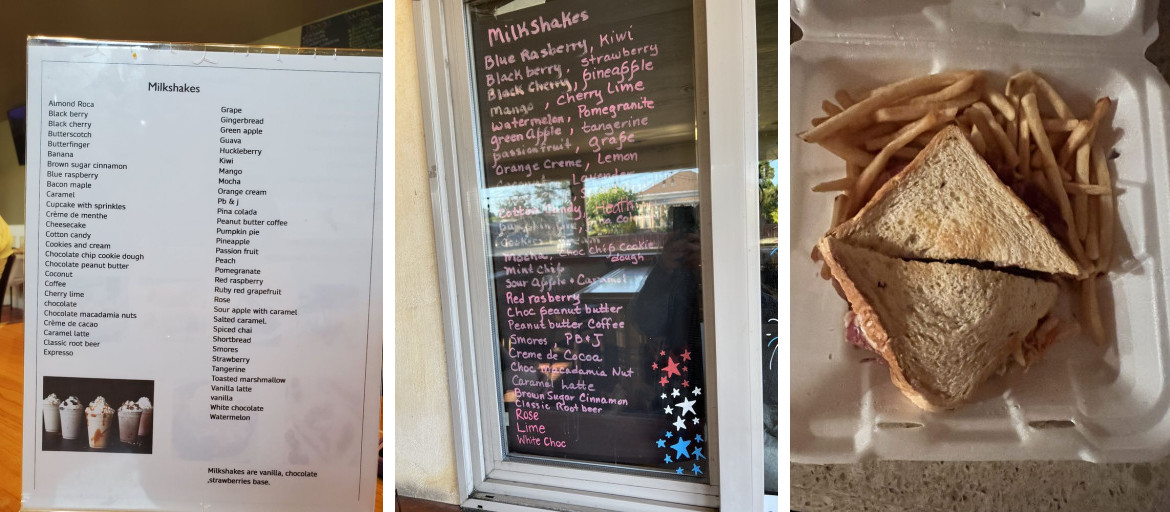 Milkshakes
Almond Roca
Black berry
Black cherry
Butterscotch
Butterfinger
Banana
Brown sugar cinnamon
Blue raspberry
Bacon maple
Caramel
Cupcake with sprinkles
Crème de menthe
Cheesecake
Cotton candy
Cookies and cream
Chocolate chip cookie dough
Chocolate peanut butter
Coconut
Coffee
Cherry lime
chocolate
Chocolate macadamia nuts
Crème de cacao
Caramel latte
Classic root beer
Expresso
Grape
Gingerbread
Green apple
Guava
Huckleberry
Kiwi
Mango
Mocha
Orange cream
Pb & j
Pina colada
Peanut butter coffee
Pumpkin pie
Pineapple
Passion fruit
Peach
Pomegranate
Red raspberry
Ruby red grapefruit
Rose
Sour apple with caramel
Salted caramel,
Spiced chai
Shortbread
Smores
Strawberry
Tangerine
Toasted marshmallow
Vanilla latte
vanilla
White chocolate
Watermelon
Milkshakes are vanilla, chocolate
,strawberries base.
Milkshakes
Blue Rasberry, Kiwi
Blackberry, Strawberry
Black Cherry, pineapple
mango, cherry lime
Watermelon, Pomegranite
green Apple, tangerine
passionfruit, grape
Orange Creme, Lemon
Lavender
Cotton Candy,
Mocha, Choc Chip Cookie
dough
Mint chip
Sour Apple & Caramel
Red rasberry
Choc peanut butter
Peanut butter Coffee
Smores, PB&J
Creme de Cocoa
Choc macadamia Nut
Caramel Latte
Brown Sugar Cinnamon
Classic Root beer
Rose
Lime
White Choc